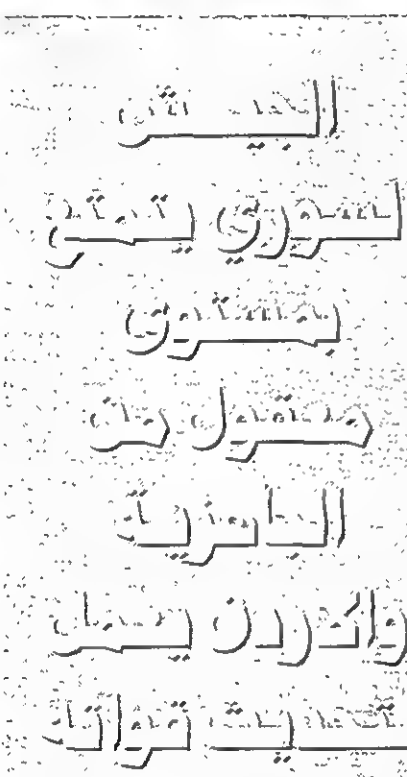 الجيش
السوري يتمتع
بمستوى
معقول من
الجاهزية
والاردن يفضل
تحديث قواته